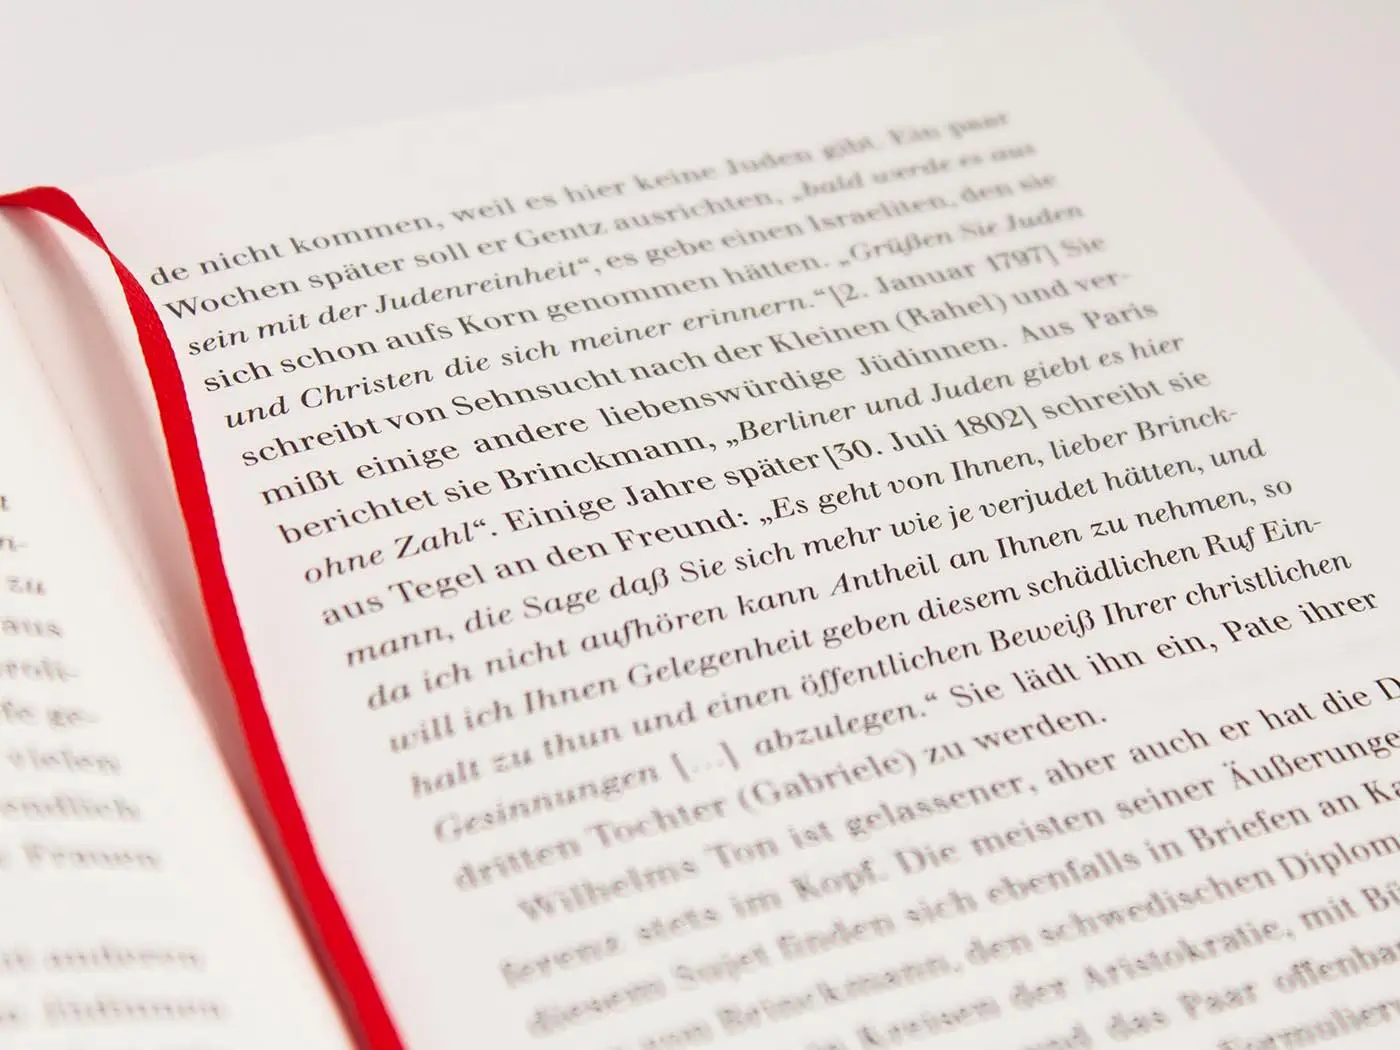 n-
zu
aus
fe ge-
vielen
endlich
Frauen
anderen
Jüdinnen
de nicht kommen, weil es hier keine Juden gibt. Ein paar
Wochen später soll er Gentz ausrichten, „bald werde es aus
sein mit der Judenreinheit“, es gebe einen Israeliten, den sie
sich schon aufs Korn genommen hätten. „Grüßen Sie Juden
und Christen die sich meiner erinnern.“[2. Januar 1797] Sie
schreibt von Sehnsucht nach der Kleinen (Rahel) und ver-
mißt einige andere liebenswürdige Jüdinnen. Aus Paris
berichtet sie Brinckmann, „Berliner und Juden giebt es hier
ohne Zahl“. Einige Jahre später [30. Juli 1802] schreibt sie
aus Tegel an den Freund: „Es geht von Ihnen, lieber Brinck-
mann, die Sage daß Sie sich mehr wie je verjudet hätten, und
da ich nicht aufhören kann Antheil an Ihnen zu nehmen, so
will ich Ihnen Gelegenheit geben diesem schädlichen Ruf Ein-
halt zu thun und einen öffentlichen Beweiß Ihrer christlichen
Gesinnungen [...] abzulegen.“ Sie lädt ihn ein, Pate ihrer
dritten Tochter (Gabriele) zu werden.
Wilhelms Ton ist gelassener, aber auch er hat die D
ferenz stets im Kopf. Die meisten seiner Äußerunge
diesem Sujet finden sich ebenfalls in Briefen an Ka
von Brinckmann, den schwedischen Diplom
in Kreisen der Aristokratie, mit Bü
und das Paar offenba
Formulier